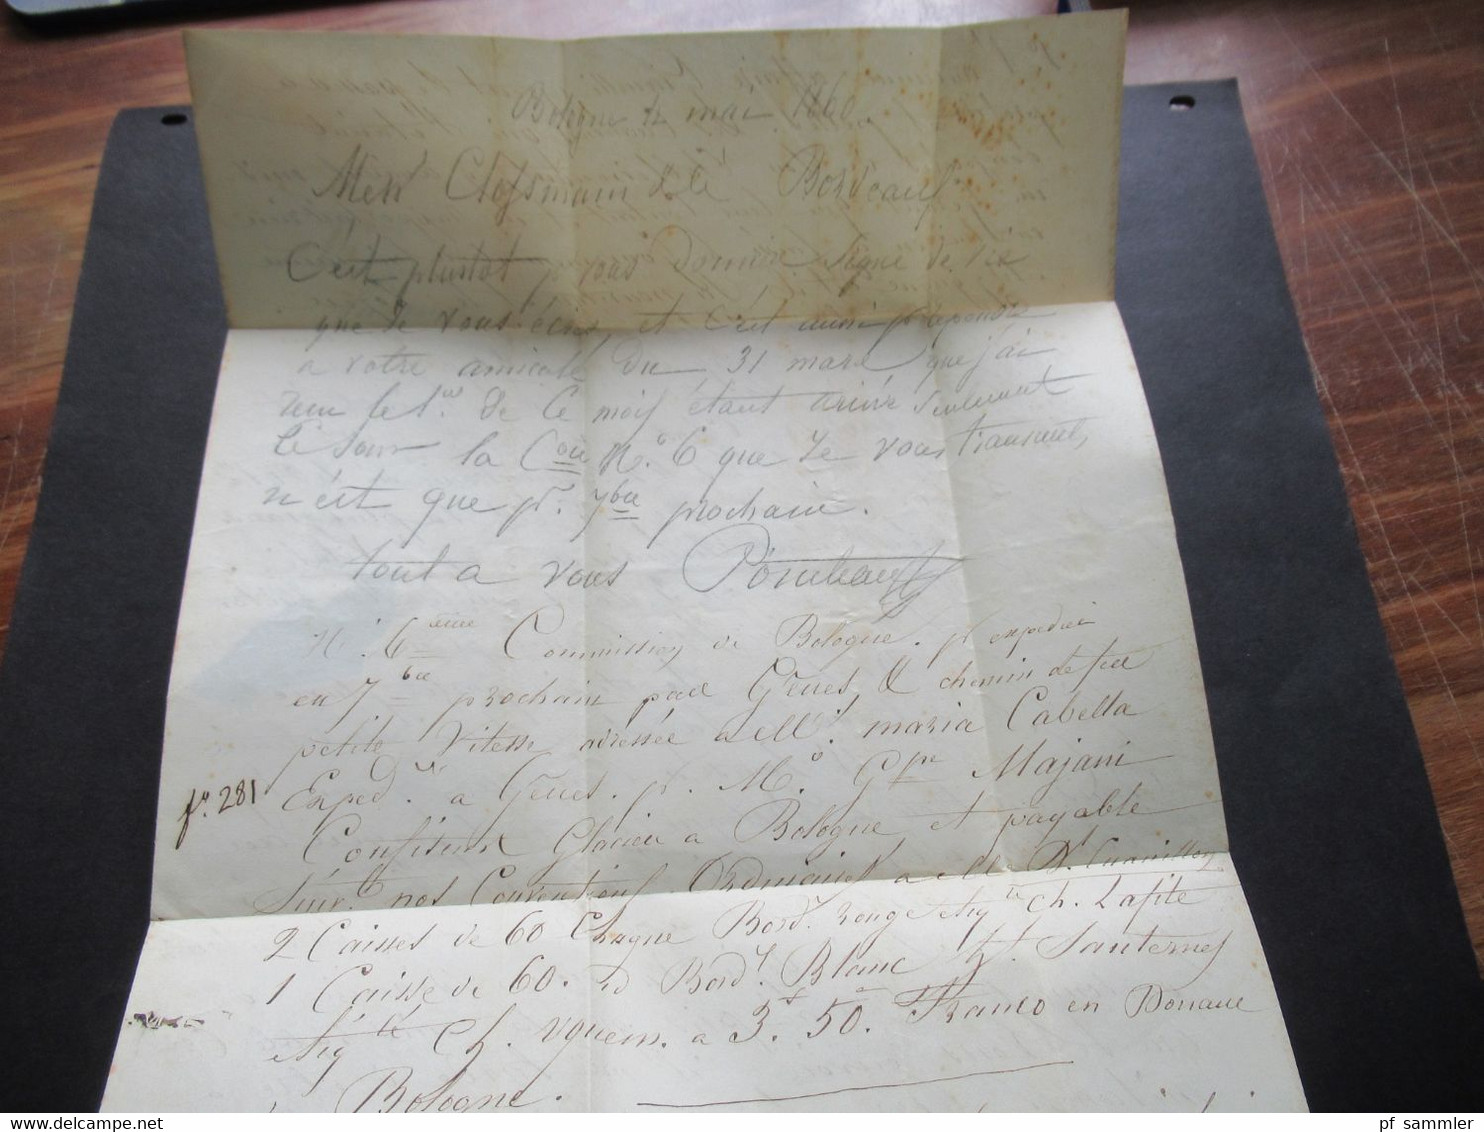 Bologne 4 mai 1860.
Mess.rs Clossmann & Cie Bordeaux
C'est plustot p. vous donner signe de vie
que je vous écris, et c'est aussi p. repondre
a votre amicale du 31 mars que j'ai
recu le 1.er de Ce mois étant arrivé seulement
le jour la Con N.o 6 que Je vous transmets,
n'ést que p.r 7bre prochain.
tout a vous
N.o 6eme Commission de Bologne. p. expedier
en 7bre prochain par Gênes & chemin de fer
petite Vitesse adréssée a M.r maria Cabella
Exped.r a Gênes. p. M.o Gpe Majani
Confiseur Glacier a Bologne et payable
Suiv.t nos Conventions Ordinaires a
fo. 281
2 Caisses de 60 Chaqne Bord.x rouge Etiq.te ch. Lafite
1 Caisse de 60. id Bord.x Blanc ht. Sauternes
Etiq.te Ch. yquem. a 3f. 50. Franco en Douane
Bologne.
pf sammler